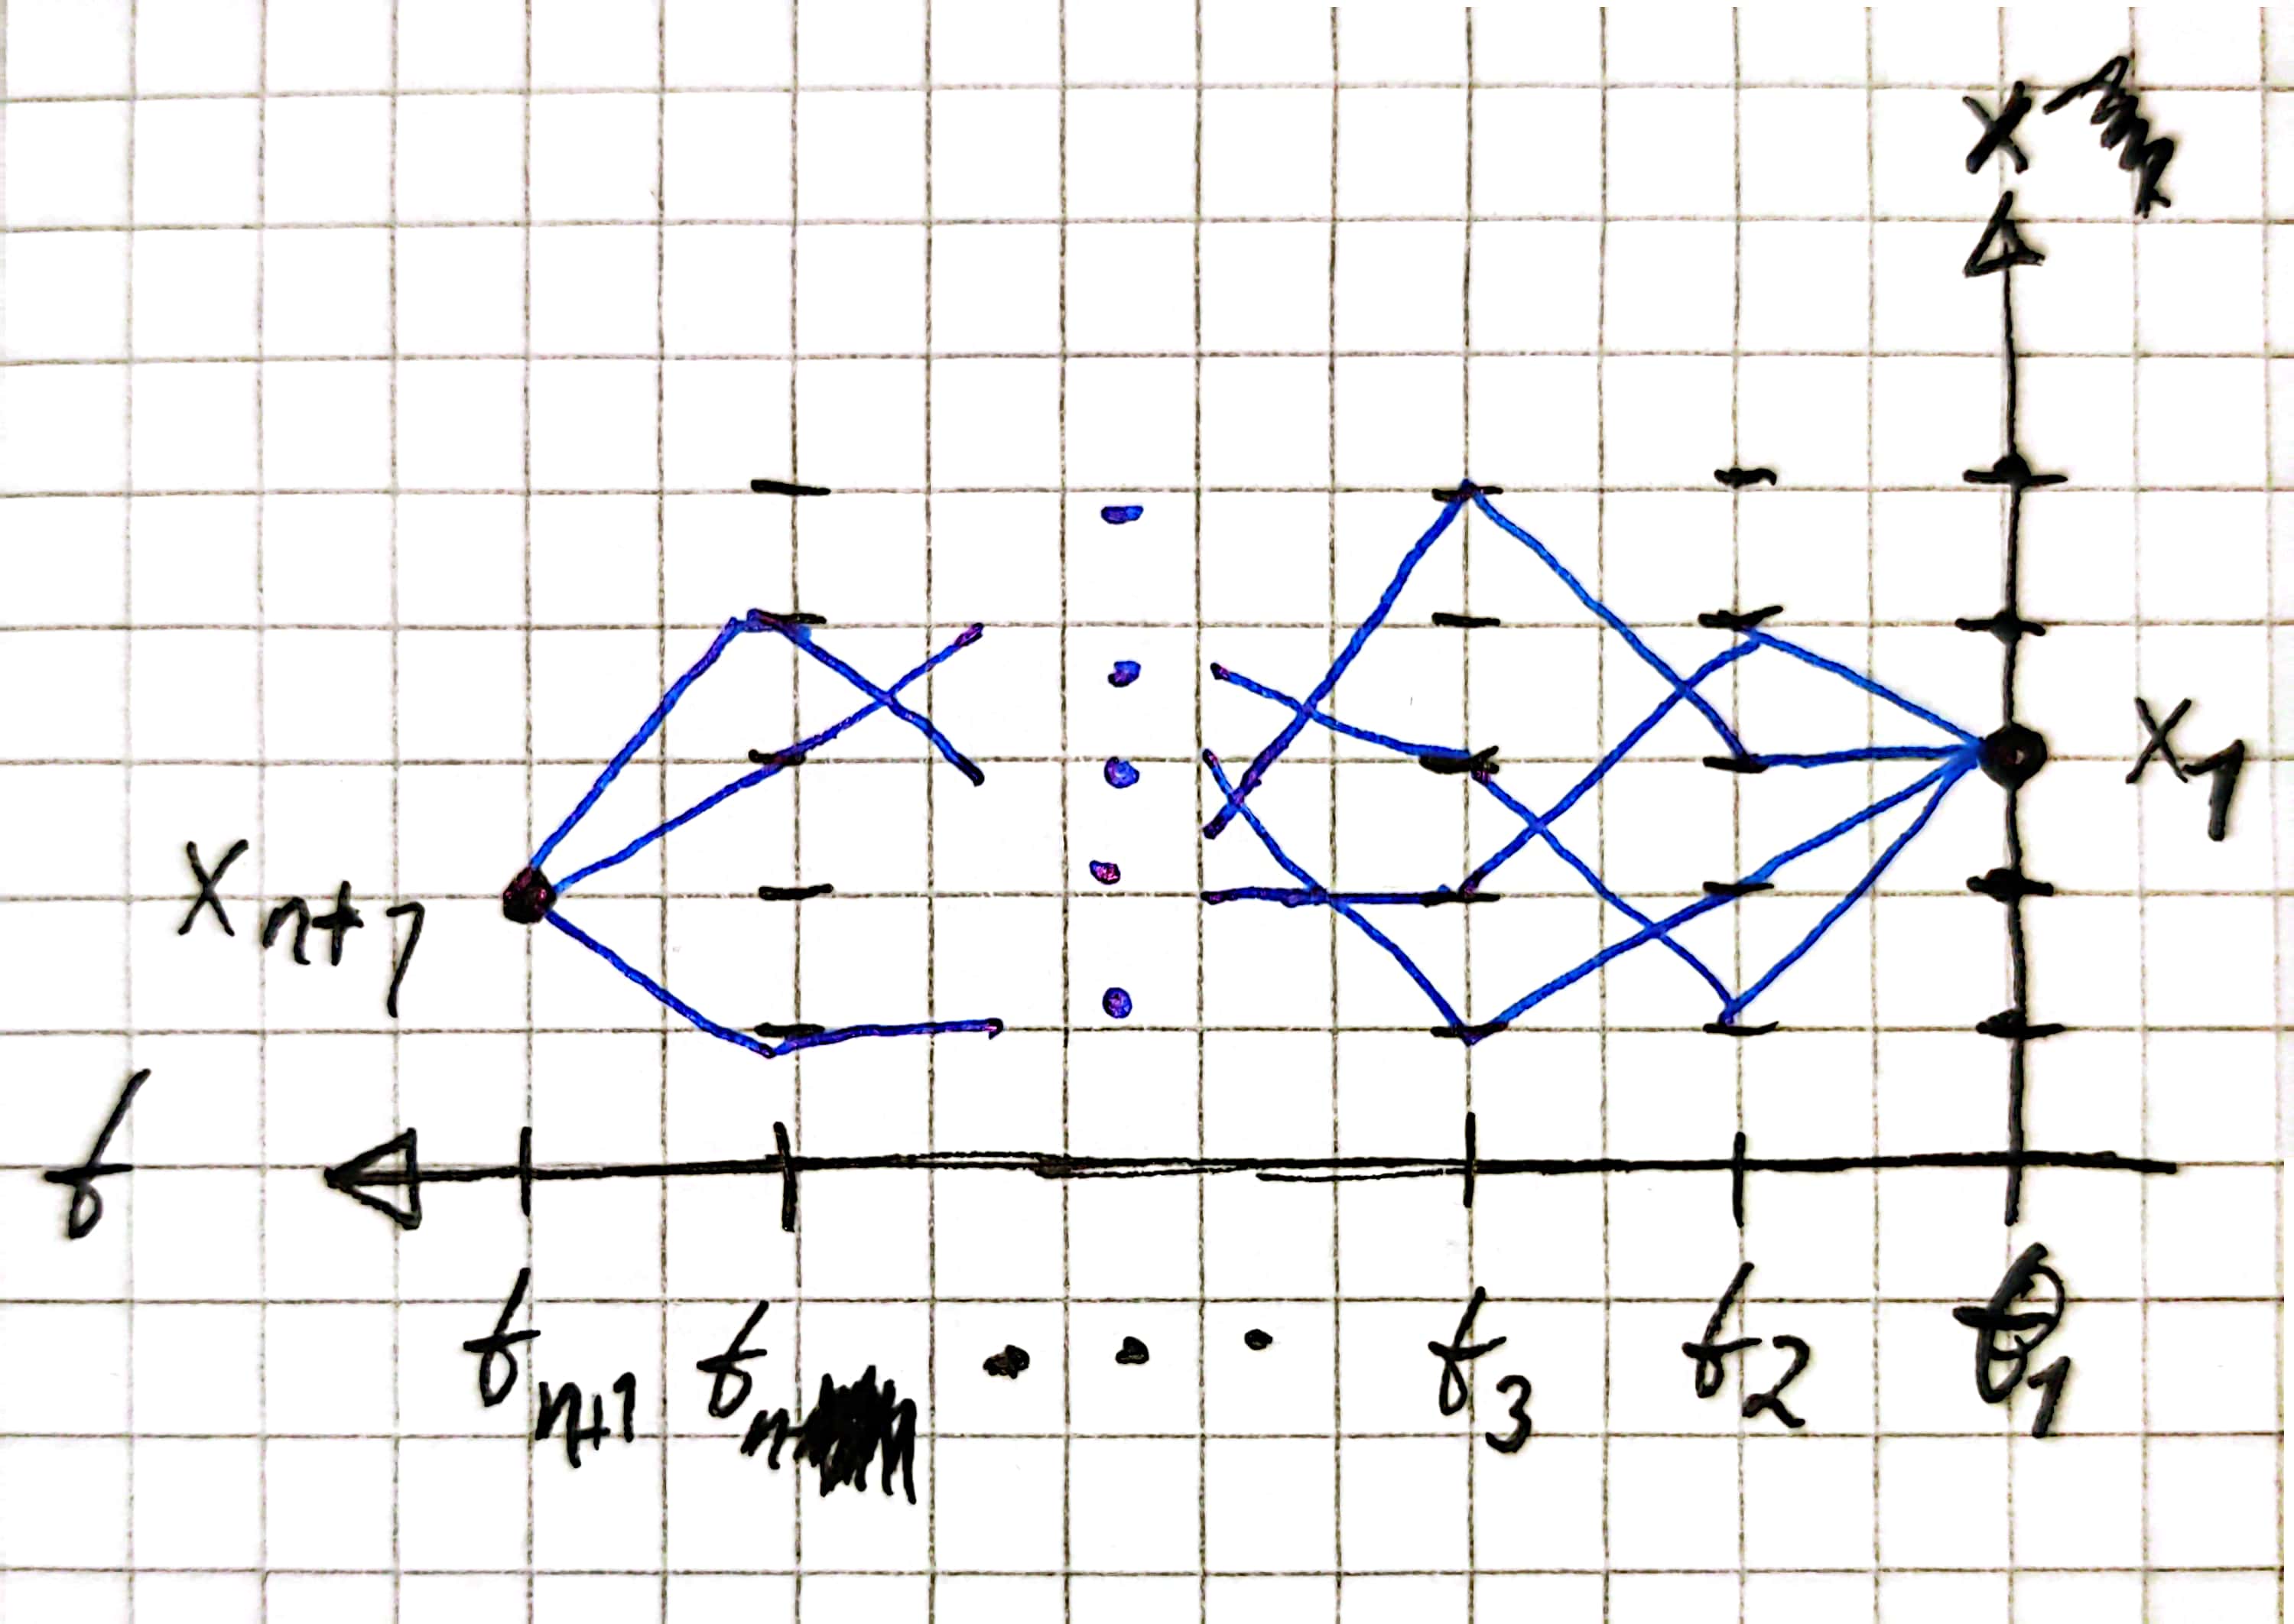 x
x₁
xₙ₊₁
t
tₙ₊₁ tₙ . . . t₃ t₂ t₁